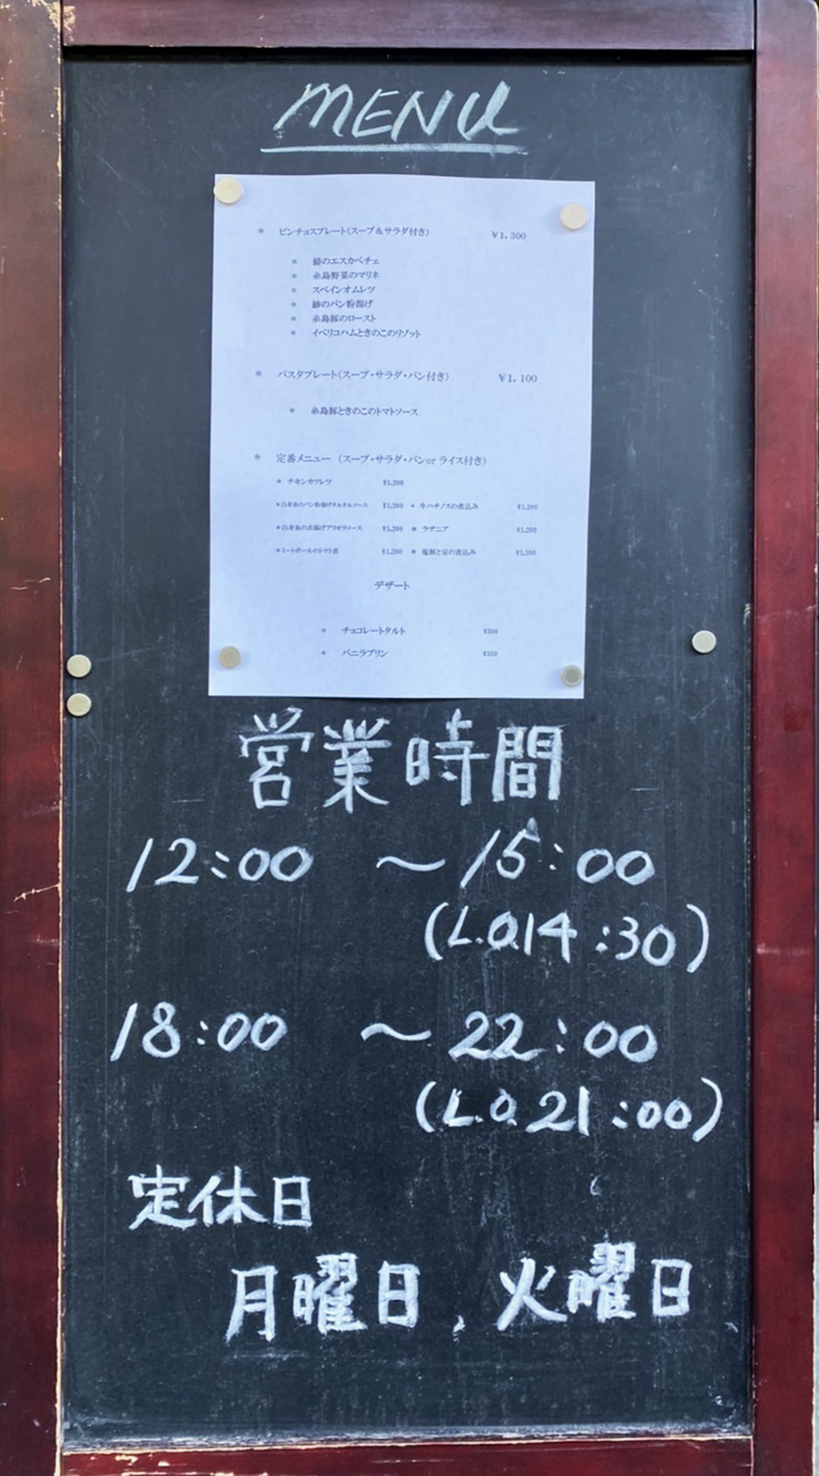 MENU
* ピンチョスプレート(スープ&サラダ付き) ¥1,300
* 鯵のエスカベチェ
* 糸島野菜のマリネ
* スペインオムレツ
* 鯵のパン粉揚げ
* 糸島豚のロースト
* イベリコハムときのこのリゾット
* パスタプレート(スープ・サラダ・パン付き) ¥1,100
* 糸島豚ときのこのトマトソース
* 定番メニュー (スープ・サラダ・パンor ライス付き)
* チキンカツレツ ¥1,200
*白身魚のパン粉揚げタルタルソース ¥1,200 * 牛ハチノスの煮込み ¥1,200
*白身魚の衣揚げアリオリソース ¥1,200 * ラザニア ¥1,200
*ミートボールのトマト煮 ¥1,200 * 塩豚と豆の煮込み ¥1,200
デザート
* チョコレートタルト ¥300
* バニラプリン ¥350
営業時間
12:00 〜 15:00
(L.O.14:30)
18:00 〜 22:00
(L.O.21:00)
定休日
月曜日, 火曜日